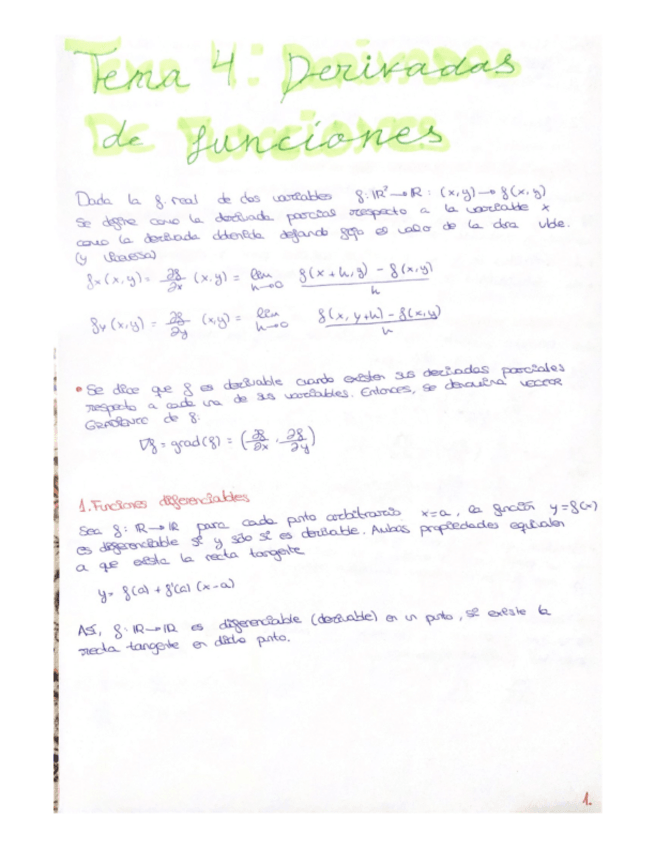 Tema 4: Derivadas
de funciones
Dada la f. real de dos variables f: ℝ² → ℝ : (x,y) → f(x,y)
Se define como la derivada parcial respecto a la variable x
como la derivada obtenida dejando fijo el valor de la otra vble.
(y viceversa)
fx(x,y) = ∂f/∂x (x,y) = lim h→0 (f(x+h,y) - f(x,y))/h
fy(x,y) = ∂f/∂y (x,y) = lim h→0 (f(x,y+h) - f(x,y))/h
• Se dice que f es derivable cuando existen sus derivadas parciales
respecto a cada una de sus variables. Entonces, se denomina VECTOR
GRADIENTE de f:
∇f = grad(f) = (∂f/∂x, ∂f/∂y)
1. Funciones diferenciables
Sea f: ℝ → ℝ para cada pnto arbitrario x=a, la función y=f(x)
es diferenciable si y sólo si es derivable. Ambas propiedades equivalen
a que exista la recta tangente
y = f(a) + f'(a) (x-a)
Así, f: ℝ → ℝ es diferenciable (derivable) en un pnto, si existe la
recta tangente en dicho pnto.
1.